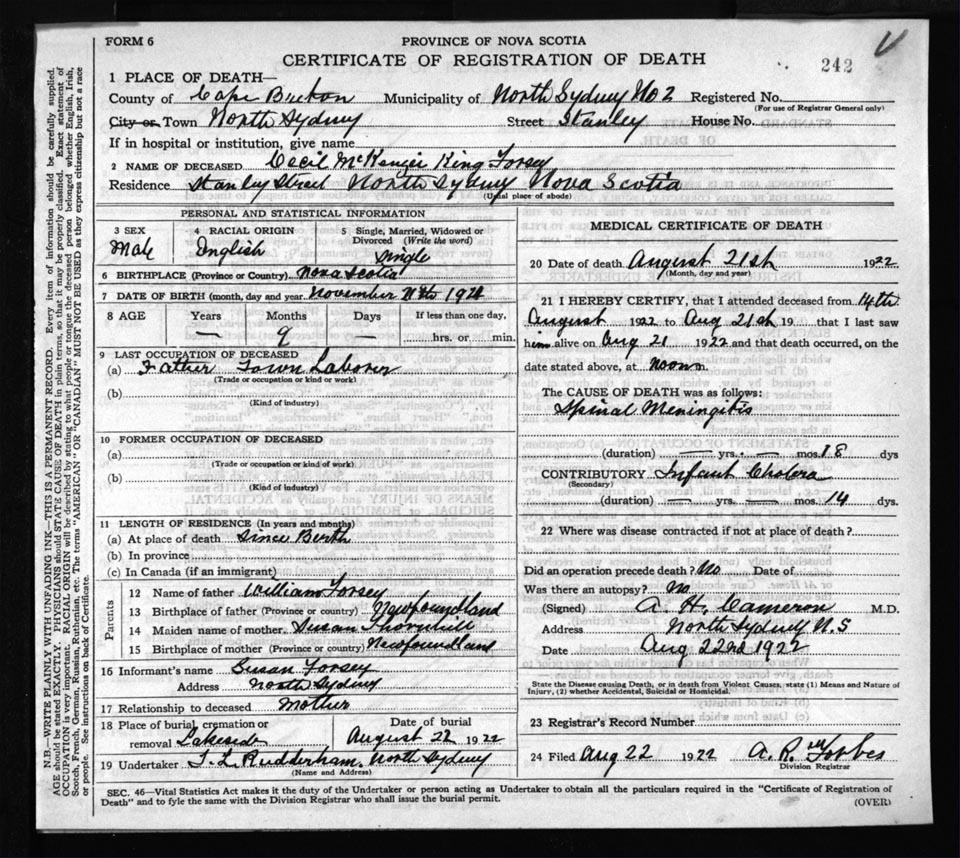 FORM 6
PROVINCE OF NOVA SCOTIA
CERTIFICATE OF REGISTRATION OF DEATH
242
1 PLACE OF DEATH—
County of Cape Breton Municipality of North Sydney No 2 Registered No.
(For use of Registrar General only)
City or Town North Sydney Street Stanley House No.
If in hospital or institution, give name
2 NAME OF DECEASED Cecil McKenzie King Forsey
Residence Stanley Street North Sydney Nova Scotia
(Usual place of abode)
PERSONAL AND STATISTICAL INFORMATION
3 SEX Male
4 RACIAL ORIGIN English
5 Single, Married, Widowed or Divorced (Write the word) Single
6 BIRTHPLACE (Province or Country) Nova Scotia
7 DATE OF BIRTH (month, day and year. November 1921
8 AGE Years — Months 9 Days — If less than one day, hrs. or min.
9 LAST OCCUPATION OF DECEASED
(a) Father Town Laborer
(Trade or occupation or kind or work)
(b)
(Kind of industry)
10 FORMER OCCUPATION OF DECEASED
(a)
(Trade or occupation or kind of work)
(b)
(Kind of industry)
11 LENGTH OF RESIDENCE (In years and months)
(a) At place of death Since Berth
(b) In province
(c) In Canada (if an immigrant)
Parents
12 Name of father William Forsey
13 Birthplace of father (Province or country) Newfoundland
14 Maiden name of mother Susan Thornhill
15 Birthplace of mother (Province or country) Newfoundland
16 Informant's name Susan Forsey
Address North Sydney
17 Relationship to deceased Mother
18 Place of burial, cremation or removal Lakeside
Date of burial August 22 1922
19 Undertaker T. L. Rudderham. North Sydney
(Name and Address)
MEDICAL CERTIFICATE OF DEATH
20 Date of death August 21st 1922
(Month, day and year)
21 I HEREBY CERTIFY, that I attended deceased from 14th
August 1922 to Aug 21st 19 that I last saw
him alive on Aug 21 1922 and that death occurred, on the
date stated above, at noon m.
The CAUSE OF DEATH was as follows:
Spinal Meningitis
(duration) — yrs. — mos. 18 dys
CONTRIBUTORY Infant Cholera
(Secondary)
(duration) — yrs. — mos. 14 dys.
22 Where was disease contracted if not at place of death?
Did an operation precede death? No Date of
Was there an autopsy? No
(Signed) A. H. Cameron M.D.
Address North Sydney N.S
Date Aug 22nd 1922
State the Disease causing Death, or in death from Violent Causes, state (1) Means and Nature of
Injury, (2) whether Accidental, Suicidal or Homicidal.
23 Registrar's Record Number
24 Filed Aug 22 1922 A. R. Forbes
Division Registrar
SEC. 46—Vital Statistics Act makes it the duty of the Undertaker or person acting as Undertaker to obtain all the particulars required in the "Certificate of Registration of
Death" and to fyle the same with the Division Registrar who shall issue the burial permit.
(OVER)
N.B.—WRITE PLAINLY WITH UNFADING INK—THIS IS A PERMANENT RECORD. Every item of information should be carefully supplied.
AGE should be stated EXACTLY. PHYSICIANS should STATE CAUSE OF DEATH in plain terms, so that it may be properly classified. Exact statement of
OCCUPATION is very important. RACIAL ORIGIN will be described by stating to what people or tongue the deceased person belonged whether English, Irish,
Scotch, French, German, Russian, Ruthenian, etc. The terms "AMERICAN" OR "CANADIAN" MUST NOT BE USED as they express citizenship but not a race
or people. See instructions on back of Certificate.